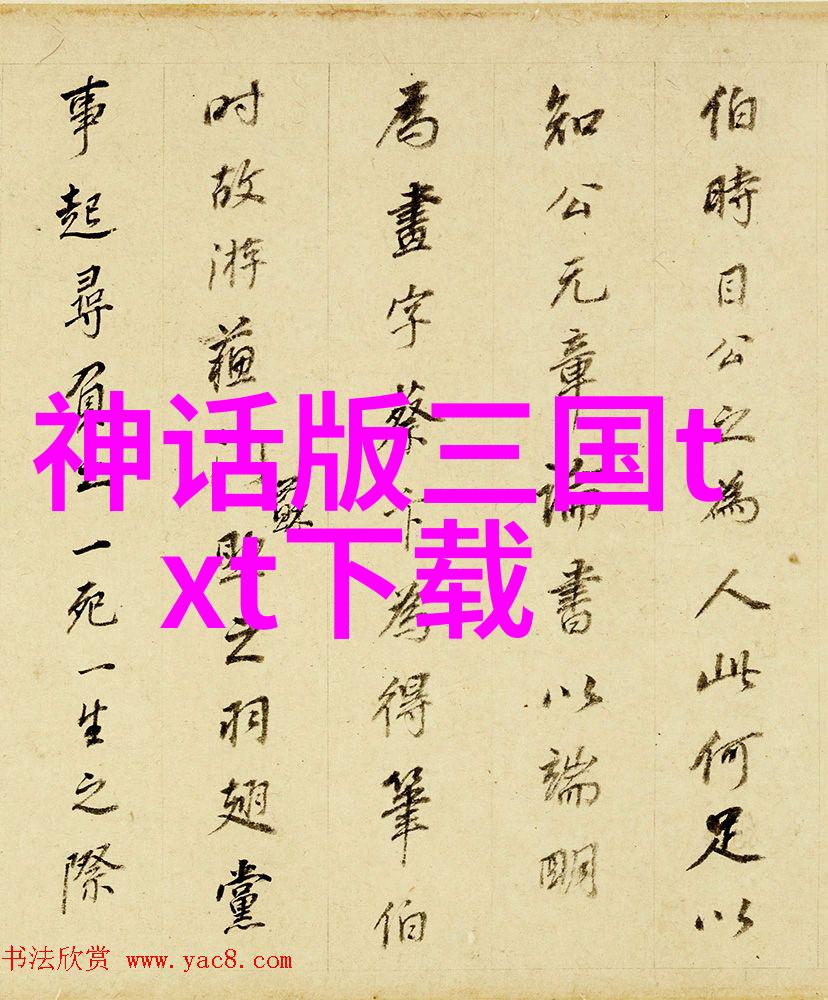 伯時目公之為人此何足以
知公元章論書以端明
為畫字蔡卞為得筆伯
时故游蘓之羽翅黨
蘇
事起尋負一死一生之際
神话版三国t
xt下载
书法欣赏 www.yac8.com